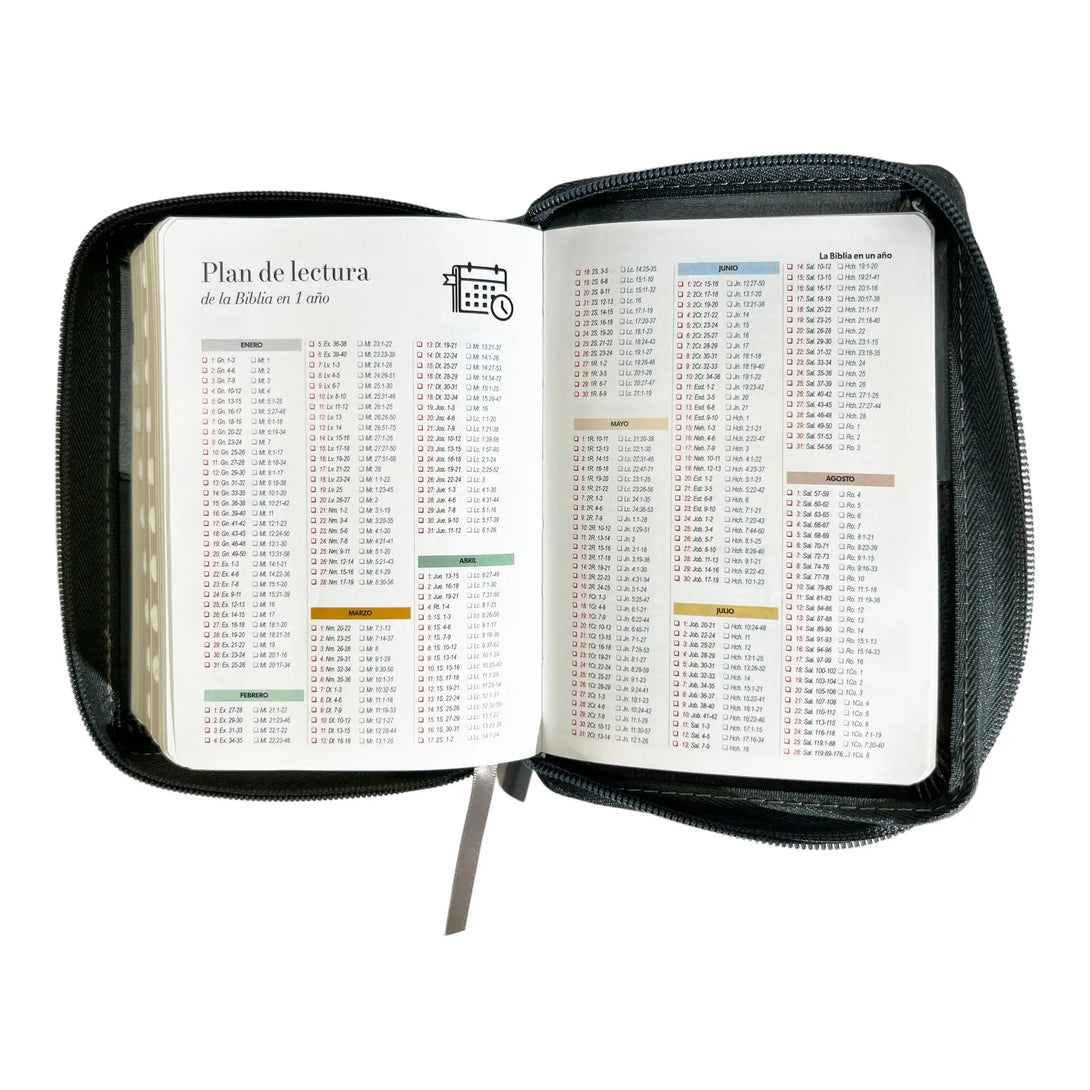 Plan de lectura
de la Biblia en 1 año
ENERO
1: Gn. 1-3 Mt. 1
2: Gn. 4-6 Mt. 2
3: Gn. 7-9 Mt. 3
4: Gn. 10-12 Mt. 4
5: Gn. 13-15 Mt. 5:1-26
6: Gn. 16-17 Mt. 5:27-48
7: Gn. 18-19 Mt. 6:1-18
8: Gn. 20-22 Mt. 6:19-34
9: Gn. 23-24 Mt. 7
10: Gn. 25-26 Mt. 8:1-17
11: Gn. 27-28 Mt. 8:18-34
12: Gn. 29-30 Mt. 9:1-17
13: Gn. 31-32 Mt. 9:18-38
14: Gn. 33-35 Mt. 10:1-20
15: Gn. 36-38 Mt. 10:21-42
16: Gn. 39-40 Mt. 11
17: Gn. 41-42 Mt. 12:1-23
18: Gn. 43-45 Mt. 12:24-50
19: Gn. 46-48 Mt. 13:1-30
20: Gn. 49-50 Mt. 13:31-58
21: Ex. 1-3 Mt. 14:1-21
22: Ex. 4-6 Mt. 14:22-36
23: Ex. 7-8 Mt. 15:1-20
24: Ex. 9-11 Mt. 15:21-39
25: Ex. 12-13 Mt. 16
26: Ex. 14-15 Mt. 17
27: Ex. 16-18 Mt. 18:1-20
28: Ex. 19-20 Mt. 18:21-35
29: Ex. 21-22 Mt. 19
30: Ex. 23-24 Mt. 20:1-16
31: Ex. 25-26 Mt. 20:17-34
FEBRERO
1: Ex. 27-28 Mt. 21:1-22
2: Ex. 29-30 Mt. 21:23-46
3: Ex. 31-33 Mt. 22:1-22
4: Ex. 34-35 Mt. 22:23-46
5: Ex. 36-38 Mt. 23:1-22
6: Ex. 39-40 Mt. 23:23-39
7: Lv. 1-3 Mt. 24:1-28
8: Lv. 4-5 Mt. 24:29-51
9: Lv. 6-7 Mt. 25:1-30
10: Lv. 8-10 Mt. 25:31-46
11: Lv. 11-12 Mt. 26:1-25
12: Lv. 13 Mt. 26:26-50
13: Lv. 14 Mt. 26:51-75
14: Lv. 15-16 Mt. 27:1-26
15: Lv. 17-18 Mt. 27:27-50
16: Lv. 19-20 Mt. 27:51-66
17: Lv. 21-22 Mt. 28
18: Lv. 23-24 Mr. 1:1-22
19: Lv. 25 Mr. 1:23-45
20: Lv. 26-27 Mr. 2
21: Nm. 1-2 Mr. 3:1-19
22: Nm. 3-4 Mr. 3:20-35
23: Nm. 5-6 Mr. 4:1-20
24: Nm. 7-8 Mr. 4:21-41
25: Nm. 9-11 Mr. 5:1-20
26: Nm. 12-14 Mr. 5:21-43
27: Nm. 15-16 Mr. 6:1-29
28: Nm. 17-19 Mr. 6:30-56
MARZO
1: Nm. 20-22 Mr. 7:1-13
2: Nm. 23-25 Mr. 7:14-37
3: Nm. 26-28 Mr. 8
4: Nm. 29-31 Mr. 9:1-29
5: Nm. 32-34 Mr. 9:30-50
6: Nm. 35-36 Mr. 10:1-31
7: Dt. 1-3 Mr. 10:32-52
8: Dt. 4-6 Mr. 11:1-18
9: Dt. 7-9 Mr. 11:19-33
10: Dt. 10-12 Mr. 12:1-27
11: Dt. 13-15 Mr. 12:28-44
12: Dt. 16-18 Mr. 13:1-20
13: Dt. 19-21 Mr. 13:21-37
14: Dt. 22-24 Mr. 14:1-26
15: Dt. 25-27 Mr. 14:27-53
16: Dt. 28-29 Mr. 14:54-72
17: Dt. 30-31 Mr. 15:1-25
18: Dt. 32-34 Mr. 15:26-47
19: Jos. 1-3 Mr. 16
20: Jos. 4-6 Lc. 1:1-20
21: Jos. 7-9 Lc. 1:21-38
22: Jos. 10-12 Lc. 1:39-56
23: Jos. 13-15 Lc. 1:57-80
24: Jos. 16-18 Lc. 2:1-24
25: Jos. 19-21 Lc. 2:25-52
26: Jos. 22-24 Lc. 3
27: Jue. 1-3 Lc. 4:1-30
28: Jue. 4-6 Lc. 4:31-44
29: Jue. 7-8 Lc. 5:1-16
30: Jue. 9-10 Lc. 5:17-39
31: Jue. 11-12 Lc. 6:1-26
ABRIL
1: Jue. 13-15 Lc. 6:27-49
2: Jue. 16-18 Lc. 7:1-30
3: Jue. 19-21 Lc. 7:31-50
4: Rt. 1-4 Lc. 8:1-25
5: 1S. 1-3 Lc. 8:26-56
6: 1S. 4-6 Lc. 9:1-17
7: 1S. 7-9 Lc. 9:18-36
8: 1S. 10-12 Lc. 9:37-62
9: 1S. 13-14 Lc. 10:1-24
10: 1S. 15-16 Lc. 10:25-42
11: 1S. 17-18 Lc. 11:1-28
12: 1S. 19-21 Lc. 11:29-54
13: 1S. 22-24 Lc. 12:1-31
14: 1S. 25-26 Lc. 12:32-59
15: 1S. 27-29 Lc. 13:1-22
16: 1S. 30-31 Lc. 13:23-35
17: 2S. 1-2 Lc. 14:1-24
La Biblia en un año
18: 2S. 3-5 Lc. 14:25-35
19: 2S. 6-8 Lc. 15:1-10
20: 2S. 9-11 Lc. 15:11-32
21: 2S. 12-13 Lc. 16
22: 2S. 14-15 Lc. 17:1-19
23: 2S. 16-18 Lc. 17:20-37
24: 2S. 19-20 Lc. 18:1-23
25: 2S. 21-22 Lc. 18:24-43
26: 2S. 23-24 Lc. 19:1-27
27: 1R. 1-2 Lc. 19:28-48
28: 1R. 3-5 Lc. 20:1-26
29: 1R. 6-7 Lc. 20:27-47
30: 1R. 8-9 Lc. 21:1-19
MAYO
1: 1R. 10-11 Lc. 21:20-38
2: 1R. 12-13 Lc. 22:1-30
3: 1R. 14-15 Lc. 22:31-46
4: 1R. 16-18 Lc. 22:47-71
5: 1R. 19-20 Lc. 23:1-25
6: 1R. 21-22 Lc. 23:26-56
7: 2R. 1-3 Lc. 24:1-35
8: 2R. 4-6 Lc. 24:36-53
9: 2R. 7-9 Jn. 1:1-28
10: 2R. 10-12 Jn. 1:29-51
11: 2R. 13-14 Jn. 2
12: 2R. 15-16 Jn. 3:1-18
13: 2R. 17-18 Jn. 3:19-36
14: 2R. 19-21 Jn. 4:1-30
15: 2R. 22-23 Jn. 4:31-54
16: 2R. 24-25 Jn. 5:1-24
17: 1Cr. 1-3 Jn. 5:25-47
18: 1Cr. 4-6 Jn. 6:1-21
19: 1Cr. 7-9 Jn. 6:22-44
20: 1Cr. 10-12 Jn. 6:45-71
21: 1Cr. 13-15 Jn. 7:1-27
22: 1Cr. 16-18 Jn. 7:28-53
23: 1Cr. 19-21 Jn. 8:1-27
24: 1Cr. 22-24 Jn. 8:28-59
25: 1Cr. 25-27 Jn. 9:1-23
26: 1Cr. 28-29 Jn. 9:24-41
27: 2Cr. 1-3 Jn. 10:1-23
28: 2Cr. 4-6 Jn. 10:24-42
29: 2Cr. 7-9 Jn. 11:1-29
30: 2Cr. 10-12 Jn. 11:30-57
31: 2Cr. 13-14 Jn. 12:1-26
JUNIO
1: 2Cr. 15-16 Jn. 12:27-50
2: 2Cr. 17-18 Jn. 13:1-20
3: 2Cr. 19-20 Jn. 13:21-38
4: 2Cr. 21-22 Jn. 14
5: 2Cr. 23-24 Jn. 15
6: 2Cr. 25-27 Jn. 16
7: 2Cr. 28-29 Jn. 17
8: 2Cr. 30-31 Jn. 18:1-18
9: 2Cr. 32-33 Jn. 18:19-40
10: 2Cr. 34-36 Jn. 19:1-22
11: Esd. 1-2 Jn. 19:23-42
12: Esd. 3-5 Jn. 20
13: Esd. 6-8 Jn. 21
14: Esd. 9-10 Hch. 1
15: Neh. 1-3 Hch. 2:1-21
16: Neh. 4-6 Hch. 2:22-47
17: Neh. 7-9 Hch. 3
18: Neh. 10-11 Hch. 4:1-22
19: Neh. 12-13 Hch. 4:23-37
20: Est. 1-2 Hch. 5:1-21
21: Est. 3-5 Hch. 5:22-42
22: Est. 6-8 Hch. 6
23: Est. 9-10 Hch. 7:1-21
24: Job. 1-2 Hch. 7:22-43
25: Job. 3-4 Hch. 7:44-60
26: Job. 5-7 Hch. 8:1-25
27: Job. 8-10 Hch. 8:26-40
28: Job. 11-13 Hch. 9:1-21
29: Job. 14-16 Hch. 9:22-43
30: Job. 17-19 Hch. 10:1-23
JULIO
1: Job. 20-21 Hch. 10:24-48
2: Job. 22-24 Hch. 11
3: Job. 25-27 Hch. 12
4: Job. 28-29 Hch. 13:1-25
5: Job. 30-31 Hch. 13:26-52
6: Job. 32-33 Hch. 14
7: Job. 34-35 Hch. 15:1-21
8: Job. 36-37 Hch. 15:22-41
9: Job. 38-40 Hch. 16:1-21
10: Job. 41-42 Hch. 16:22-40
11: Sal. 1-3 Hch. 17:1-15
12: Sal. 4-6 Hch. 17:16-34
13: Sal. 7-9 Hch. 18
14: Sal. 10-12 Hch. 19:1-20
15: Sal. 13-15 Hch. 19:21-41
16: Sal. 16-17 Hch. 20:1-16
17: Sal. 18-19 Hch. 20:17-38
18: Sal. 20-22 Hch. 21:1-17
19: Sal. 23-25 Hch. 21:18-40
20: Sal. 26-28 Hch. 22
21: Sal. 29-30 Hch. 23:1-15
22: Sal. 31-32 Hch. 23:16-35
23: Sal. 33-34 Hch. 24
24: Sal. 35-36 Hch. 25
25: Sal. 37-39 Hch. 26
26: Sal. 40-42 Hch. 27:1-26
27: Sal. 43-45 Hch. 27:27-44
28: Sal. 46-48 Hch. 28
29: Sal. 49-50 Ro. 1
30: Sal. 51-53 Ro. 2
31: Sal. 54-56 Ro. 3
AGOSTO
1: Sal. 57-59 Ro. 4
2: Sal. 60-62 Ro. 5
3: Sal. 63-65 Ro. 6
4: Sal. 66-67 Ro. 7
5: Sal. 68-69 Ro. 8:1-21
6: Sal. 70-71 Ro. 8:22-39
7: Sal. 72-73 Ro. 9:1-15
8: Sal. 74-76 Ro. 9:16-33
9: Sal. 77-78 Ro. 10
10: Sal. 79-80 Ro. 11:1-18
11: Sal. 81-83 Ro. 11:19-36
12: Sal. 84-86 Ro. 12
13: Sal. 87-88 Ro. 13
14: Sal. 89-90 Ro. 14
15: Sal. 91-93 Ro. 15:1-13
16: Sal. 94-96 Ro. 15:14-33
17: Sal. 97-99 Ro. 16
18: Sal. 100-102 1Co. 1
19: Sal. 103-104 1Co. 2
20: Sal. 105-106 1Co. 3
21: Sal. 107-109 1Co. 4
22: Sal. 110-112 1Co. 5
23: Sal. 113-115 1Co. 6
24: Sal. 116-118 1Co. 7:1-19
25: Sal. 119:1-88 1Co. 7:20-40
26: Sal. 119:89-176 1Co. 8